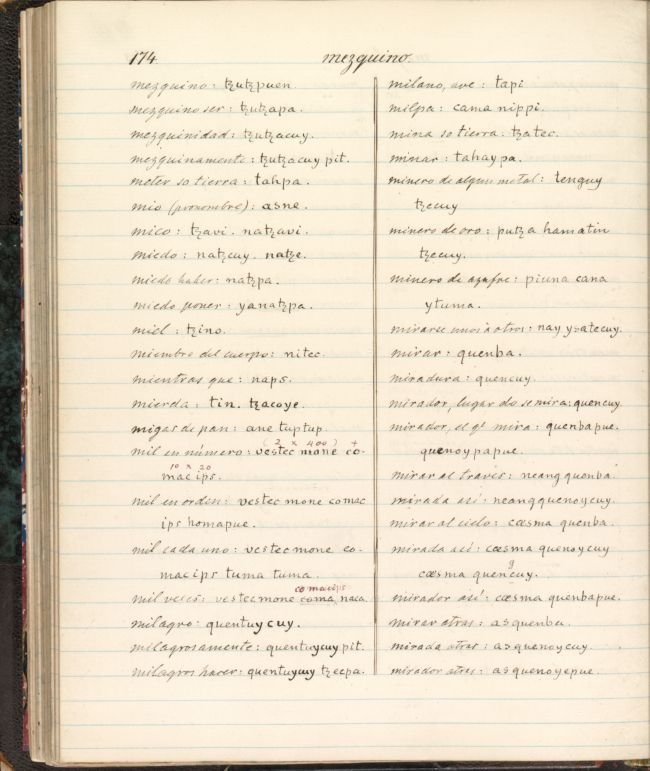 174.
mezquino.
mezquino: tzutzpuen.
mezquino ser: tzutzapa.
mezquinidad: tzutzacuy.
mezquinamente: tzutzacuy pit.
meter so tierra: tahpa.
mio (pronombre): asne.
mico: tzavi. natzavi.
miedo: natzcuy. natze.
miedo haber: natzpa.
miedo poner: yanatzpa.
miel: tzino.
miembro del cuerpo: nitec.
mientras que: naps.
mierda: tin. tzacoye.
migas de pan: ane tuptup.
(2 x 400) +
mil en número: vestec mone co-
10 x 20
mac ips.
mil en orden: vestec mone comac
ips homapue.
mil cada uno: vestec mone co-
mac ips tuma tuma.
comacips
mil veces: vestec mone coma, naca.
milagro: quentuycuy.
milagrosamente: quentuycuy pit.
milagros hacer: quentuycuy tzecpa.
milano, ave: tapi
milpa: cama nippi.
mina so tierra: tzatec.
minar: tahaypa.
minero de algun metal: tenguy
tzecuy
minero de oro: putza hamatin
tzecuy.
minero de azufre: picuna cana
ytuma.
mirarse unos á otros: nay ysatecuy.
mirar: quenba.
miradura: quencuy.
mirador, lugar do se mira: quencuy.
mirador, el q͞ mira: quenbapue.
quenoypapue.
mirar al través: neang quenba.
mirada asi: neangquenoycuy.
mirar al cielo: cœsma quenba.
mirada asi: cœsma quenoycuy
g
cœsma quencuy.
mirador asi: cœsma quenbapue.
mirar atras: asquenba.
mirada atras: asquenoycuy.
mirador atras: asquenoyepue.